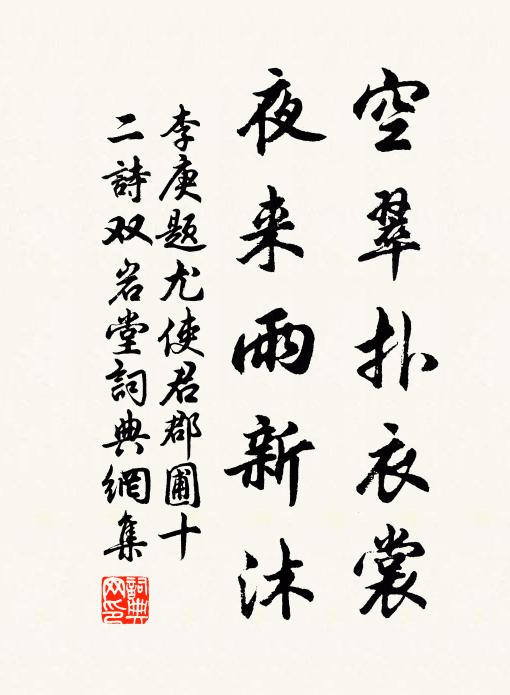 空翠扑衣裳
夜来雨新沐
李庚题尤使君郡圃十
二詩双岩堂詞典網集
詞典
网印